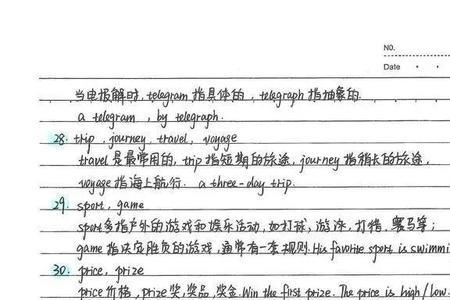 NO.
Date
当电报解时, telegram 指具体的, telegraph 指抽象的.
a telegram , by telegraph.
28. trip , journey , travel , voyage
travel 是最常用的, trip 指短期的旅途, journey 指稍长的旅途,
voyage 指海上航行. a three-day trip.
29. sport , game
sport 多指户外的游戏和娱乐活动, 如打球, 游泳, 打猎, 赛马等;
game 指决定胜负的游戏, 通常有一套规则. His favorite sport is swimmi
30. price , prize
price 价格, prize 奖, 奖品, 奖金. Win the first prize. The price is high/low.